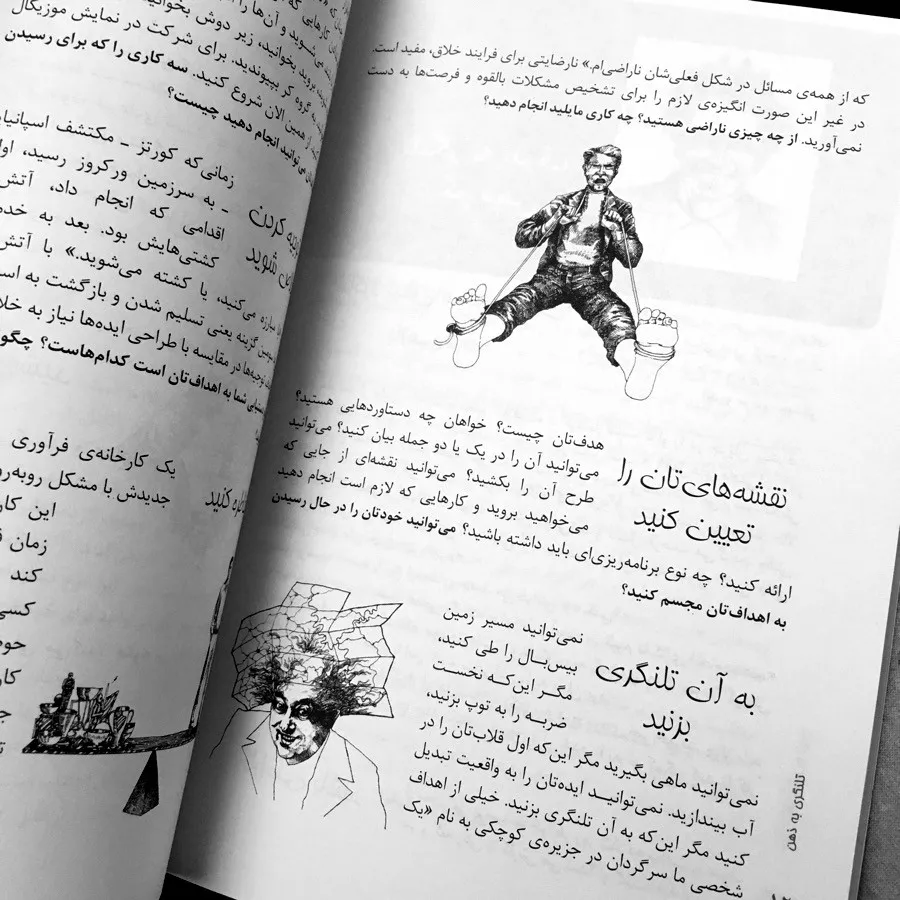 که از همه‌ی مسائل در شکل فعلی‌شان ناراضی‌ام.» نارضایتی برای فرایند خلاق، مفید است.
در غیر این صورت انگیزه‌ی لازم را برای تشخیص مشکلات بالقوه و فرصت‌ها به دست
نمی‌آورید. از چه چیزی ناراضی هستید؟ چه کاری مایلید انجام دهید؟
نقشه‌های‌تان را
تعیین کنید
هدف‌تان چیست؟ خواهان چه دستاوردهایی هستید؟
می‌توانید آن را در یک یا دو جمله بیان کنید؟ می‌توانید
طرح آن را بکشید؟ می‌توانید نقشه‌ای از جایی که
می‌خواهید بروید و کارهایی که لازم است انجام دهید
ارائه کنید؟ چه نوع برنامه‌ریزی‌ای باید داشته باشید؟ می‌توانید خودتان را در حال رسیدن
به اهداف‌تان مجسم کنید؟
به آن تلنگری
بزنید
نمی‌توانید مسیر زمین
بیس‌بال را طی کنید،
مگر این‌که نخست
ضربه را به توپ بزنید،
نمی‌توانید ماهی بگیرید مگر این‌که اول قلاب‌تان را در
آب بیندازید. نمی‌توانید ایده‌تان را به واقعیت تبدیل
کنید مگر این‌که به آن تلنگری بزنید. خیلی از اهداف
شخصی ما سرگردان در جزیره‌ی کوچکی به نام «یک
تلنگری به ذهن
شوید و آن‌ها را
بروید بخوانید، زیر دوش بخوانید
به گروه کر بپیوندید. برای شرکت در نمایش موزیکال
از همین الان شروع کنید. سه کاری را که برای رسیدن
می‌توانید انجام دهید چیست؟
زمانی‌که کورتز ـ مکتشف اسپانیایی
ـ به سرزمین ورکروز رسید،
اقدامی که انجام داد، آتش
کشتی‌هایش بود. بعد به
مبارزه می‌کنید، یا کشته می‌شوید.» با آتش
گزینه یعنی تسلیم شدن و بازگشت به
در مقایسه با طراحی ایده‌ها نیاز به
شما به اهداف‌تان است کدام‌هاست؟
کنید
یک کارخانه‌ی فرآوری
جدیدش با مشکل
این
زمان
کند